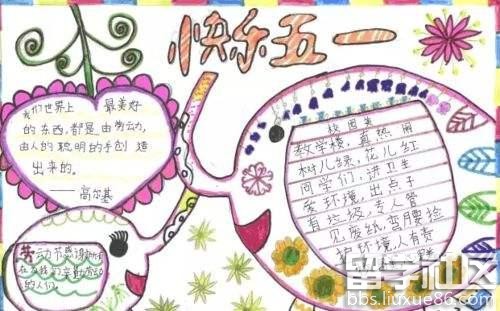 快乐五一
我们世界上最美好
的东西,都是由劳动、
由人的聪明的手创造
出来的。
——高尔基
校园美
教学楼,真热闹
树儿绿,花儿红
同学们,讲卫生
爱环境,出点子
有垃圾,专人管
见废纸,弯腰捡
护环境,人有责
劳动节感谢所有
在为我们辛勤劳动
的人们。
留学社区
bbs.liuxue86.com